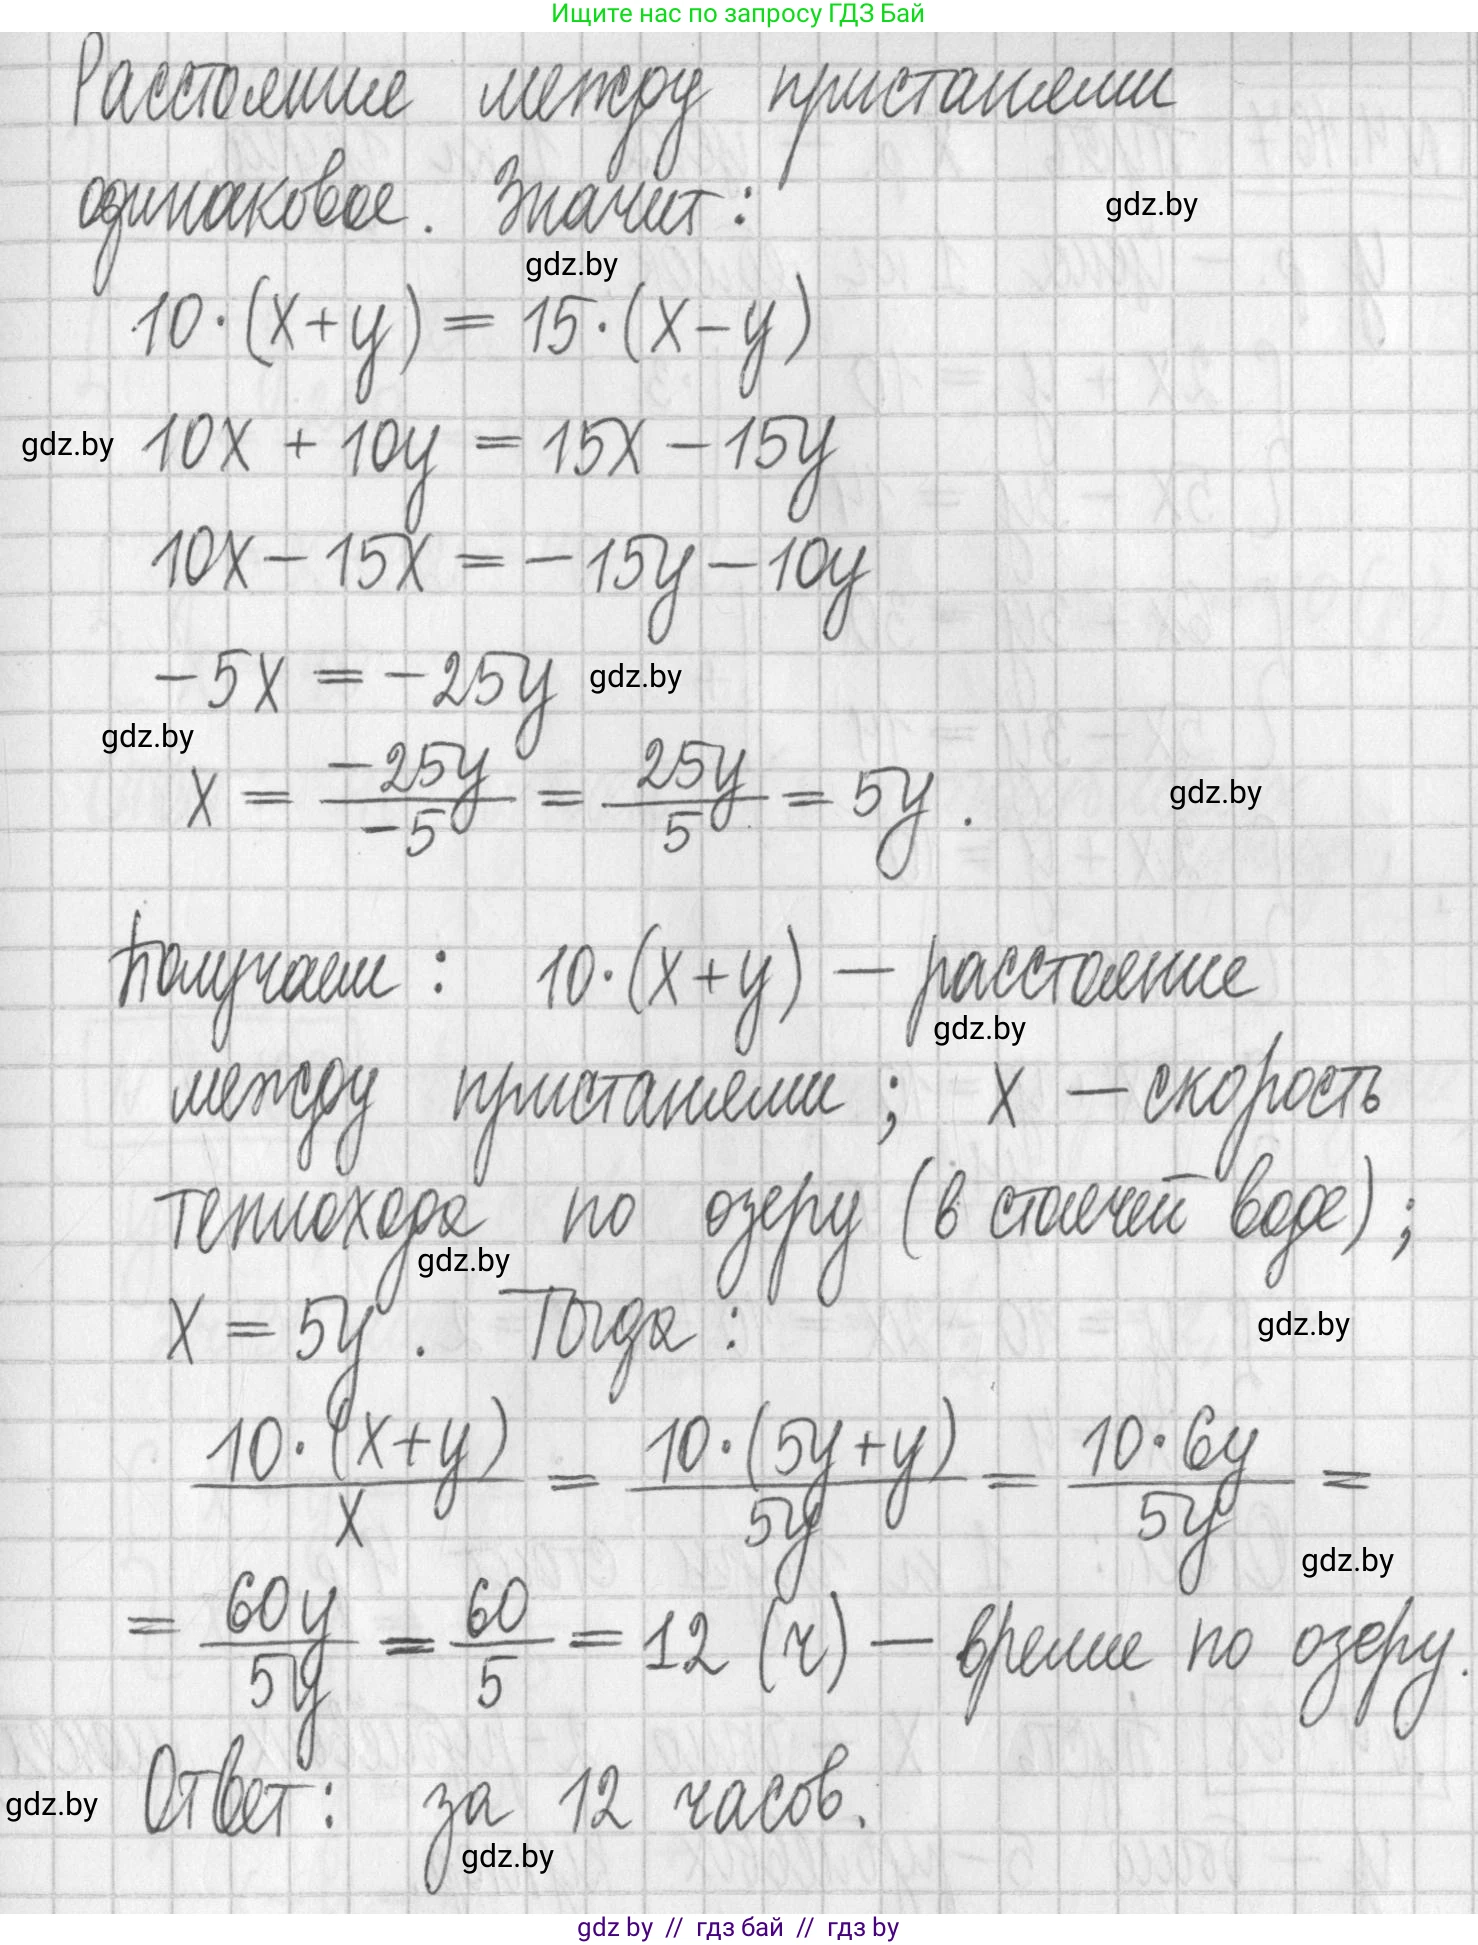 Ищите нас по запросу ГДЗ Бай
Расстояние между пристанями
одинаковое. Значит:
gdz.by
gdz.by
10·(x+y) = 15·(x−y)
gdz.by
10x + 10y = 15x − 15y
10x − 15x = −15y − 10y
−5x = −25y
gdz.by
gdz.by
x = −25y/−5 = 25y/5 = 5y.
gdz.by
Получаем: 10·(x+y) — расстояние
gdz.by
между пристанями; x — скорость
теплохода по озеру (в стоячей воде);
gdz.by
x = 5y. Тогда:
gdz.by
10·(x+y)/x = 10·(5y+y)/5y = 10·6y/5y =
gdz.by
= 60y/5y = 60/5 = 12 (ч) — время по озеру.
Ответ: за 12 часов.
gdz.by
gdz.by
gdz by // гдз бай // гдз by